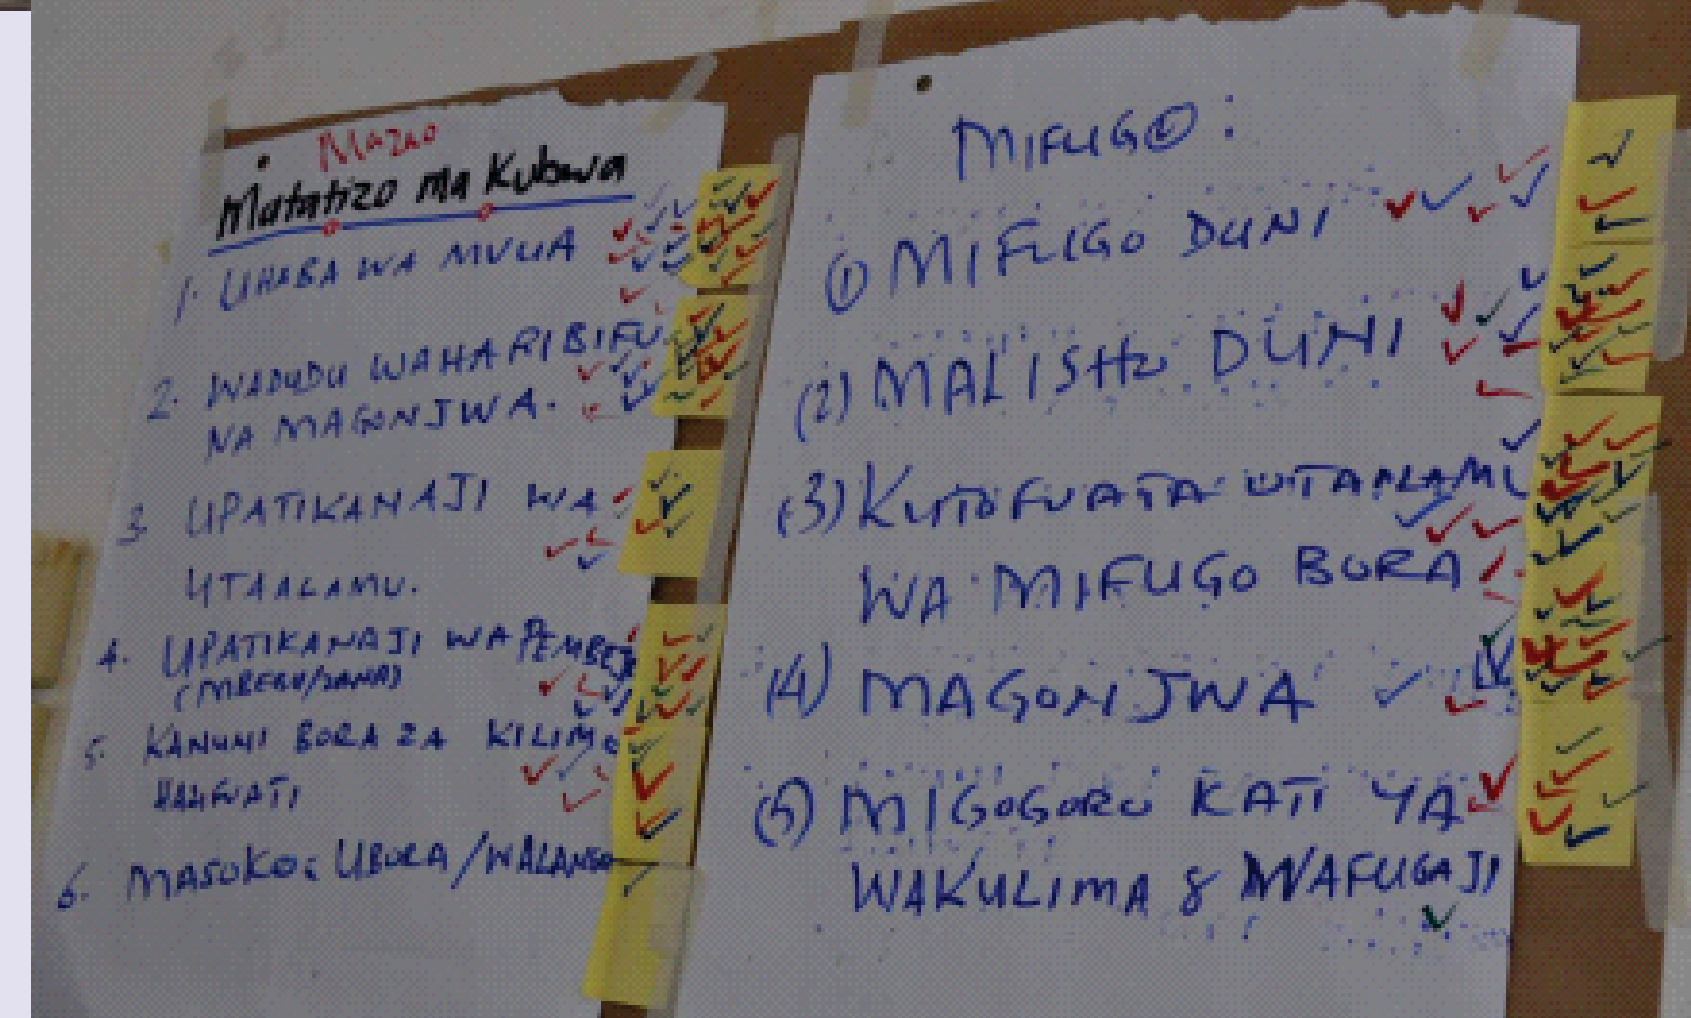 Mazao
Matatizo ma Kubwa
1. UHABA WA MVUA
2. WADUDU WAHARIBIFU
NA MAGONJWA.
3. UPATIKANAJI WA
UTAALAMU.
4. UPATIKANAJI WA PEMBEJ
(MBEGU/ZANA)
5. KANUNI BORA ZA KILIMO
HAZIFUATI
6. MASOKO: UBORA/WALANGU
MIFUGO:
(1) MIFUGO DUNI
(2) MALISHO DUNI
(3) KUTOFUATA UTAALAMU
WA MIFUGO BORA
(4) MAGONJWA
(5) MIGOGORO KATI YA
WAKULIMA & WAFUGAJI